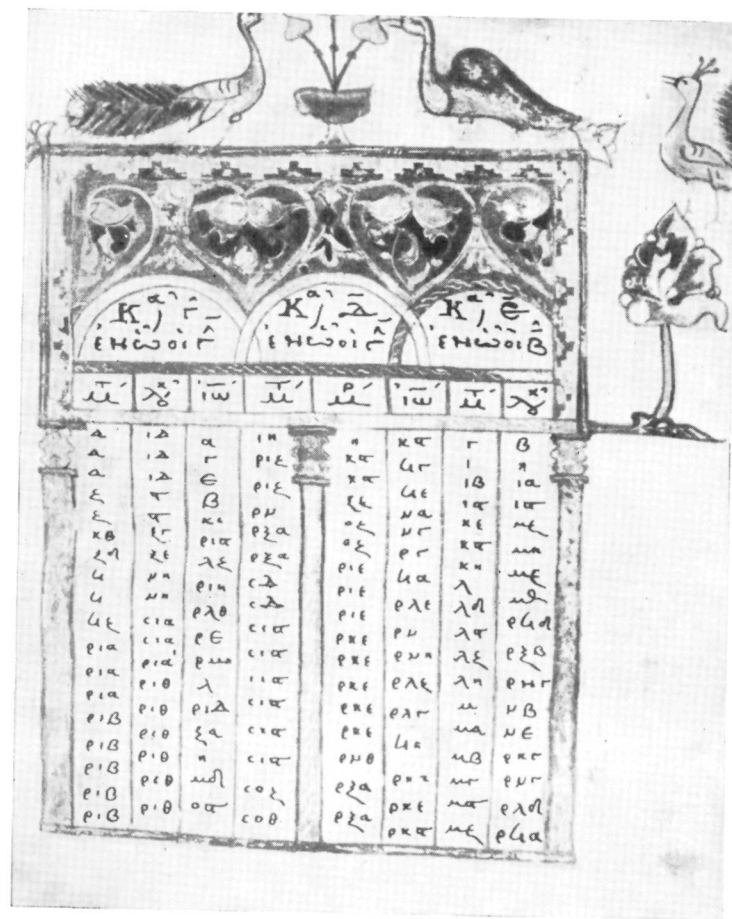 Κα Γ Κα Δ Κα Ε
ἐν ᾧ οἱ Γ ἐν ᾧ οἱ Γ ἐν ᾧ οἱ Β
Μ Λκ Ιω Μ Μρ Ιω Μ Λκ
α ιδ α ιη η κϛ γ β
α ιδ γ ριζ κϛ ϟγ ι η
α ιδ ε ριζ κϛ ϟε ιβ ια
ζ ϛ β ρν ξζ να ιϛ ιϛ
ζ ϛ κε ρξα οζ νγ κε μϛ
ξγ ριϛ ρξα οζ ργ κϛ μη
ξδ ξε λζ σδ ριε ϟα κη μζ
ϟ νη ριη σδ ριε ρλε λ μθ
ϟ νη ρλθ σιϛ ριε ρν λδ ρϟδ
ϟζ σια ρε σιϛ ρκε ρμη λϛ ρξβ
ρια ρμη ρκε ρλζ λζ ρνγ
ρια ριθ λ σιϛ ρκε ρλγ λη νβ
ρια ριθ ριδ σκϛ ρκε ϟα μ νε
ριβ ριθ ξα σιϛ ρκε μα ρκγ
ριβ ριθ η σοζ ρνθ ρκε μβ ρνγ
ριβ ριθ μδ σοθ ρξα ρκϛ μγ ρλδ
ριβ ριθ οϛ ρξα μζ ρϟα
ριβ